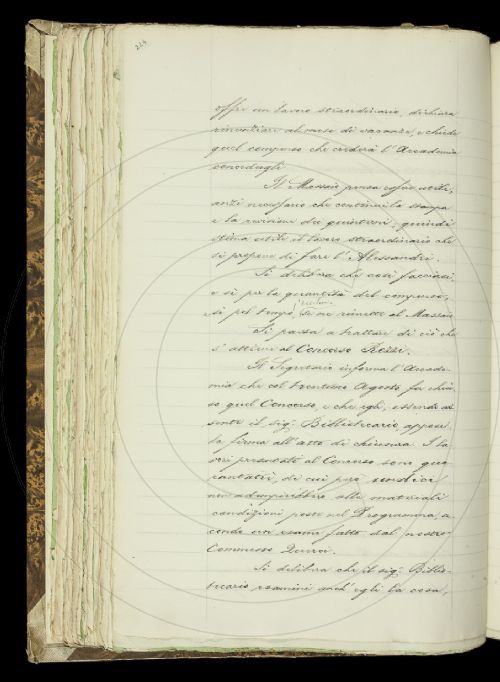 224
offre un lavoro straordinario, dichiara
rinunziare al mese di vacanze, e chiede
quel compenso che crederà l'Accademia
concedergli.
Il Massaio pensa esser utile,
anzi necessario che continui la stampa
e la revisione dei quinterni, quindi
stima utile il lavoro straordinario che
si propone di fare l'Alessandri.
Si delibera che così facciasi,
e sì per la quantità del compenso,
sì pel tempo, se ne rimette al Massaio
Si passa a trattare di ciò che
s'attiene al Concorso Rezzi.
Il Segretario informa l'Accade-
mia che col trentuno Agosto fu chiu-
so quel Concorso, e che egli, essendo as-
sente il sig. Bibliotecario appose
la firma all'atto di chiusura. I la-
vori presentati al Concorso sono qua-
rantatrè, di cui però sendici
non adempirebbero alle materiali
condizioni poste nel Programma, se-
condo un esame fatto dal nostro
Commesso
Si delibera che il sig. Biblio-
tecario esamini anch'egli la cosa,